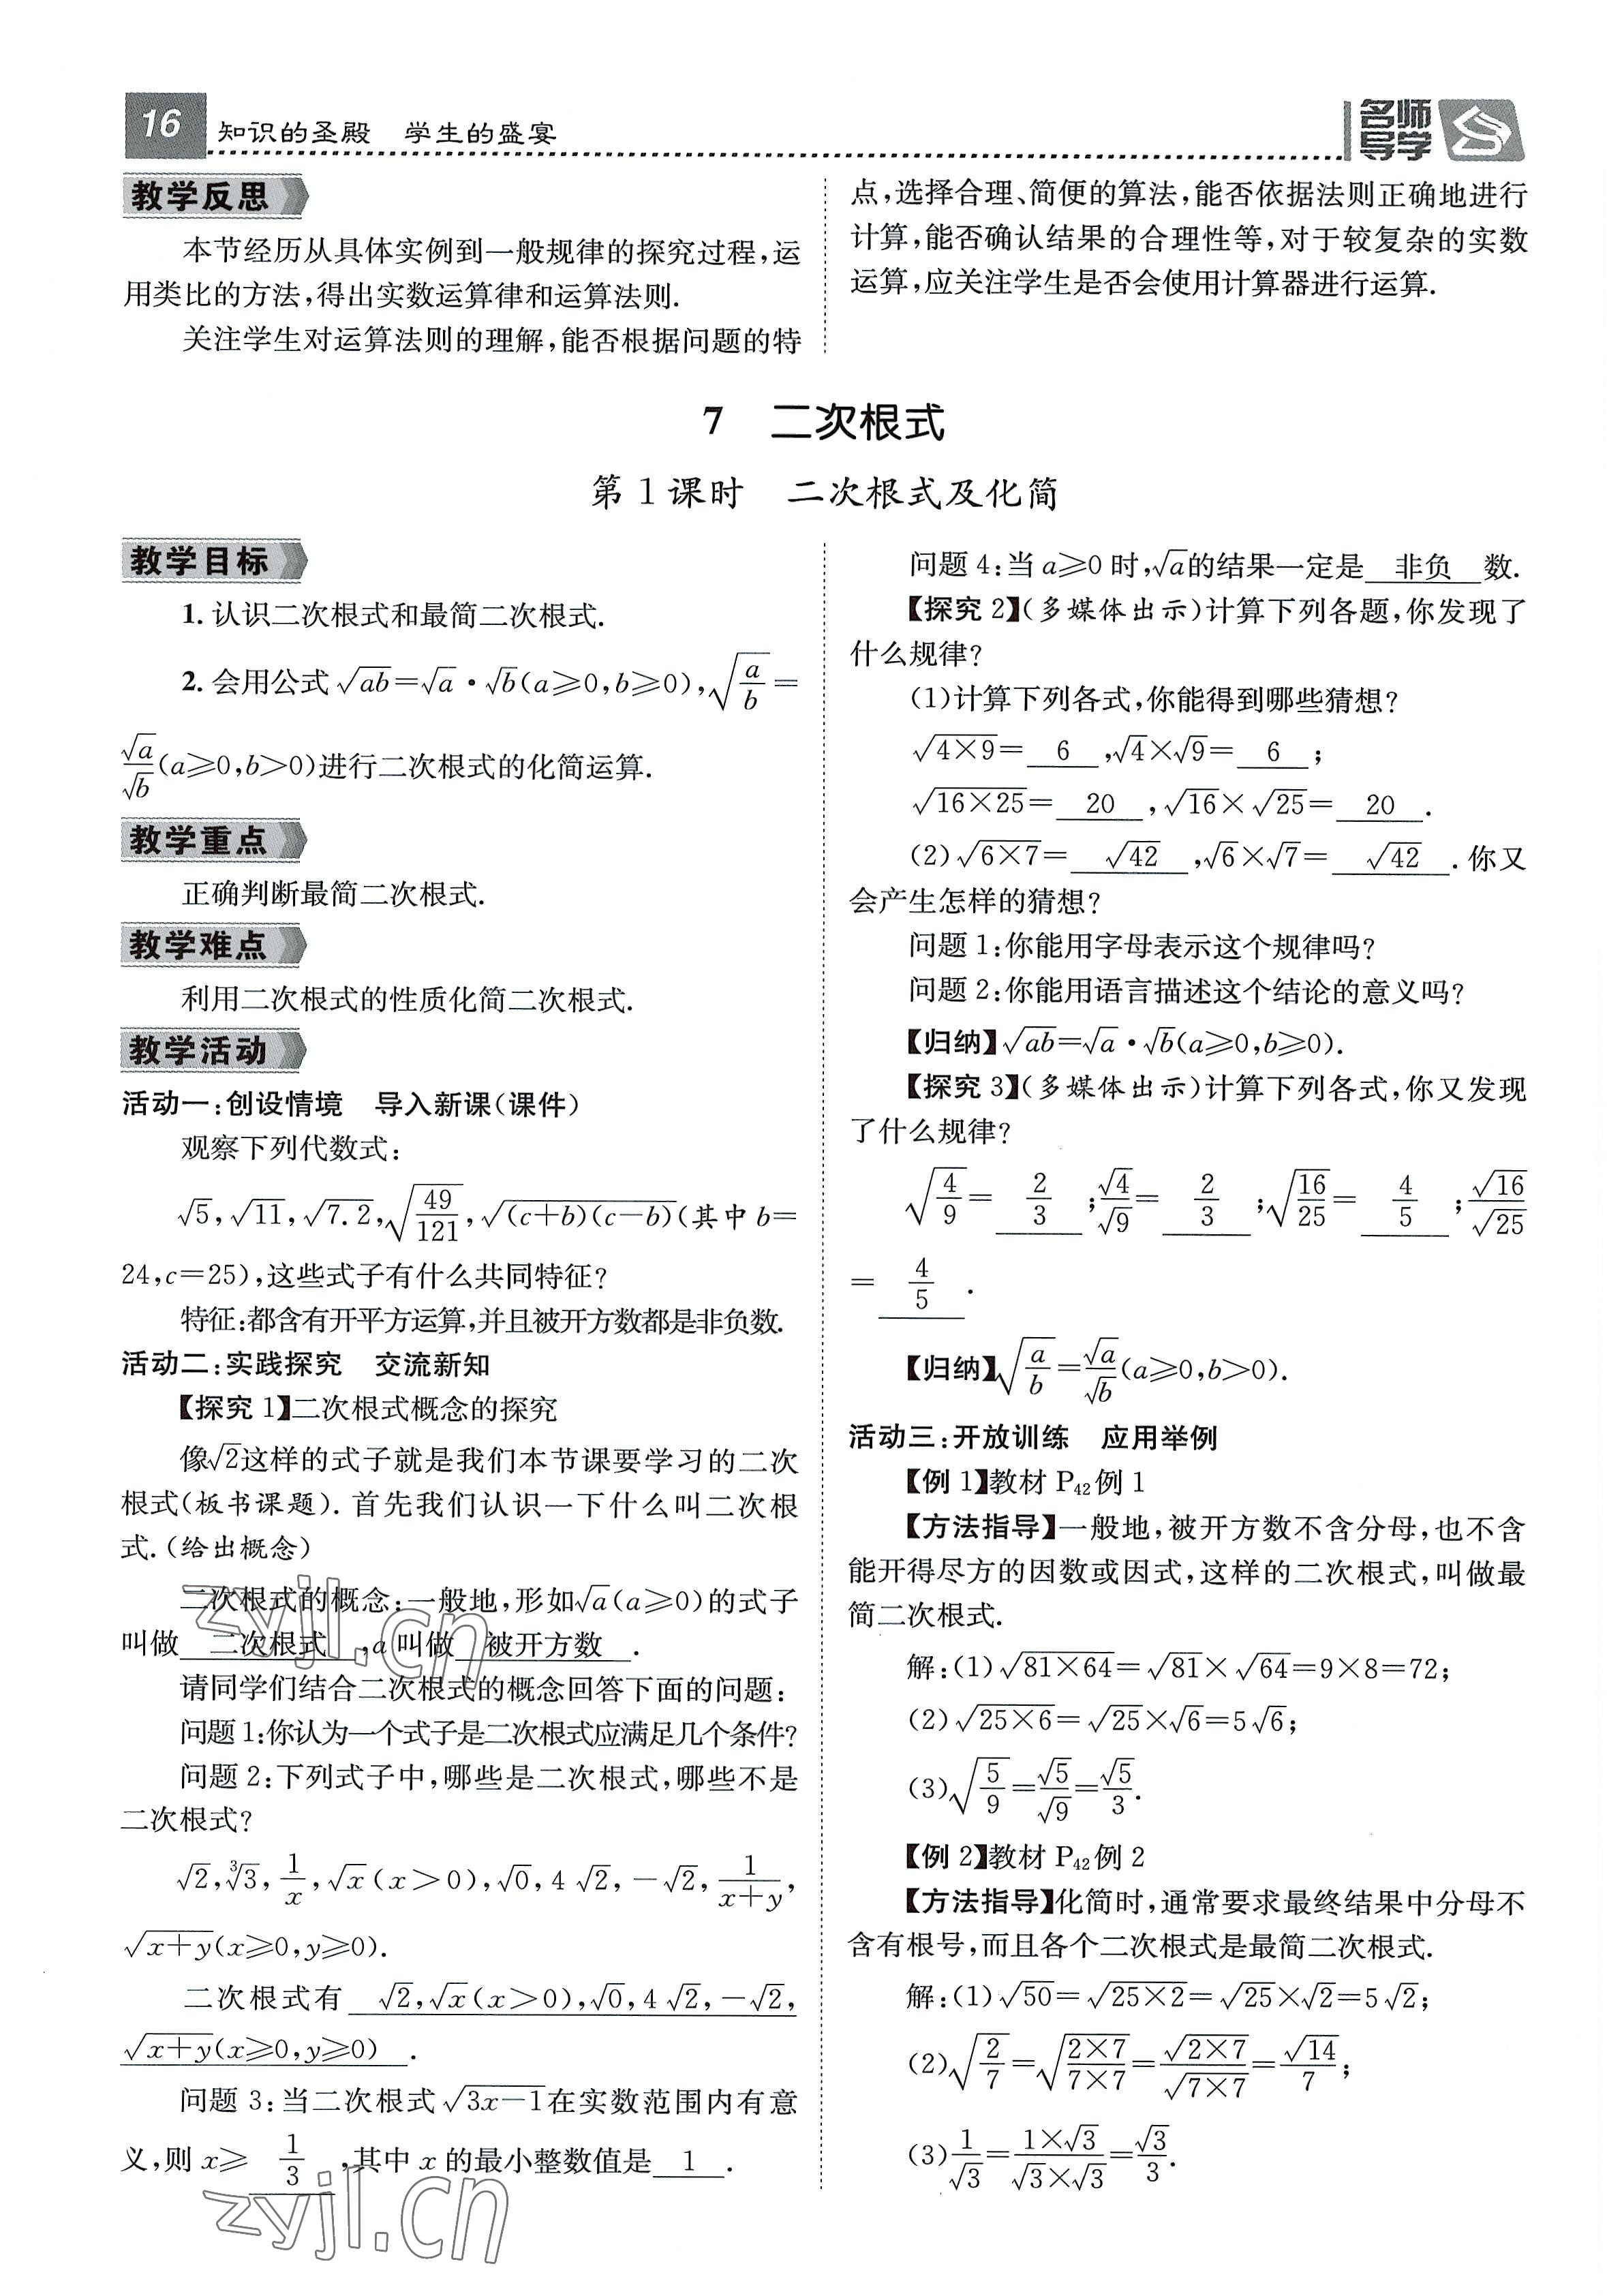 16 知识的圣殿 学生的盛宴
名师导学
教学反思
本节经历从具体实例到一般规律的探究过程,运
用类比的方法,得出实数运算律和运算法则.
关注学生对运算法则的理解,能否根据问题的特
点,选择合理、简便的算法,能否依据法则正确地进行
计算,能否确认结果的合理性等,对于较复杂的实数
运算,应关注学生是否会使用计算器进行运算.
7 二次根式
第1课时 二次根式及化简
教学目标
1. 认识二次根式和最简二次根式.
2. 会用公式√(ab)=√a·√b(a≥0,b≥0),√(a/b)=
√a/√b(a≥0,b>0)进行二次根式的化简运算.
教学重点
正确判断最简二次根式.
教学难点
利用二次根式的性质化简二次根式.
教学活动
活动一:创设情境 导入新课(课件)
观察下列代数式:
√5,√11,√7.2,√(49/121),√((c+b)(c-b))(其中b=
24,c=25),这些式子有什么共同特征?
特征:都含有开平方运算,并且被开方数都是非负数.
活动二:实践探究 交流新知
【探究1】二次根式概念的探究
像√2这样的式子就是我们本节课要学习的二次
根式(板书课题). 首先我们认识一下什么叫二次根
式.(给出概念)
二次根式的概念:一般地,形如√a(a≥0)的式子
叫做 二次根式 ,a叫做 被开方数 .
请同学们结合二次根式的概念回答下面的问题:
问题1:你认为一个式子是二次根式应满足几个条件?
问题2:下列式子中,哪些是二次根式,哪些不是
二次根式?
√2,∛3,1/x,√x(x>0),√0,4√2,-√2,1/(x+y),
√(x+y)(x≥0,y≥0).
二次根式有 √2,√x(x>0),√0,4√2,-√2,
√(x+y)(x≥0,y≥0) .
问题3:当二次根式√(3x-1)在实数范围内有意
义,则x≥ 1/3 ,其中x的最小整数值是 1 .
问题4:当a≥0时,√a的结果一定是 非负 数.
【探究2】(多媒体出示)计算下列各题,你发现了
什么规律?
(1)计算下列各式,你能得到哪些猜想?
√(4×9)= 6 ,√4×√9= 6 ;
√(16×25)= 20 ,√16×√25= 20 .
(2)√(6×7)= √42 ,√6×√7= √42 .你又
会产生怎样的猜想?
问题1:你能用字母表示这个规律吗?
问题2:你能用语言描述这个结论的意义吗?
【归纳】√(ab)=√a·√b(a≥0,b≥0).
【探究3】(多媒体出示)计算下列各式,你又发现
了什么规律?
√(4/9)= 2/3 ;√4/√9= 2/3 ;√(16/25)= 4/5 ;√16/√25
= 4/5 .
【归纳】√(a/b)=√a/√b(a≥0,b>0).
活动三:开放训练 应用举例
【例1】教材P₄₂例1
【方法指导】一般地,被开方数不含分母,也不含
能开得尽方的因数或因式,这样的二次根式,叫做最
简二次根式.
解:(1)√(81×64)=√81×√64=9×8=72;
(2)√(25×6)=√25×√6=5√6;
(3)√(5/9)=√5/√9=√5/3.
【例2】教材P₄₂例2
【方法指导】化简时,通常要求最终结果中分母不
含有根号,而且各个二次根式是最简二次根式.
解:(1)√50=√(25×2)=√25×√2=5√2;
(2)√(2/7)=√((2×7)/(7×7))=√(2×7)/√(7×7)=√14/7;
(3)1/√3=(1×√3)/(√3×√3)=√3/3.
zyjl.cn
zyjl.cn